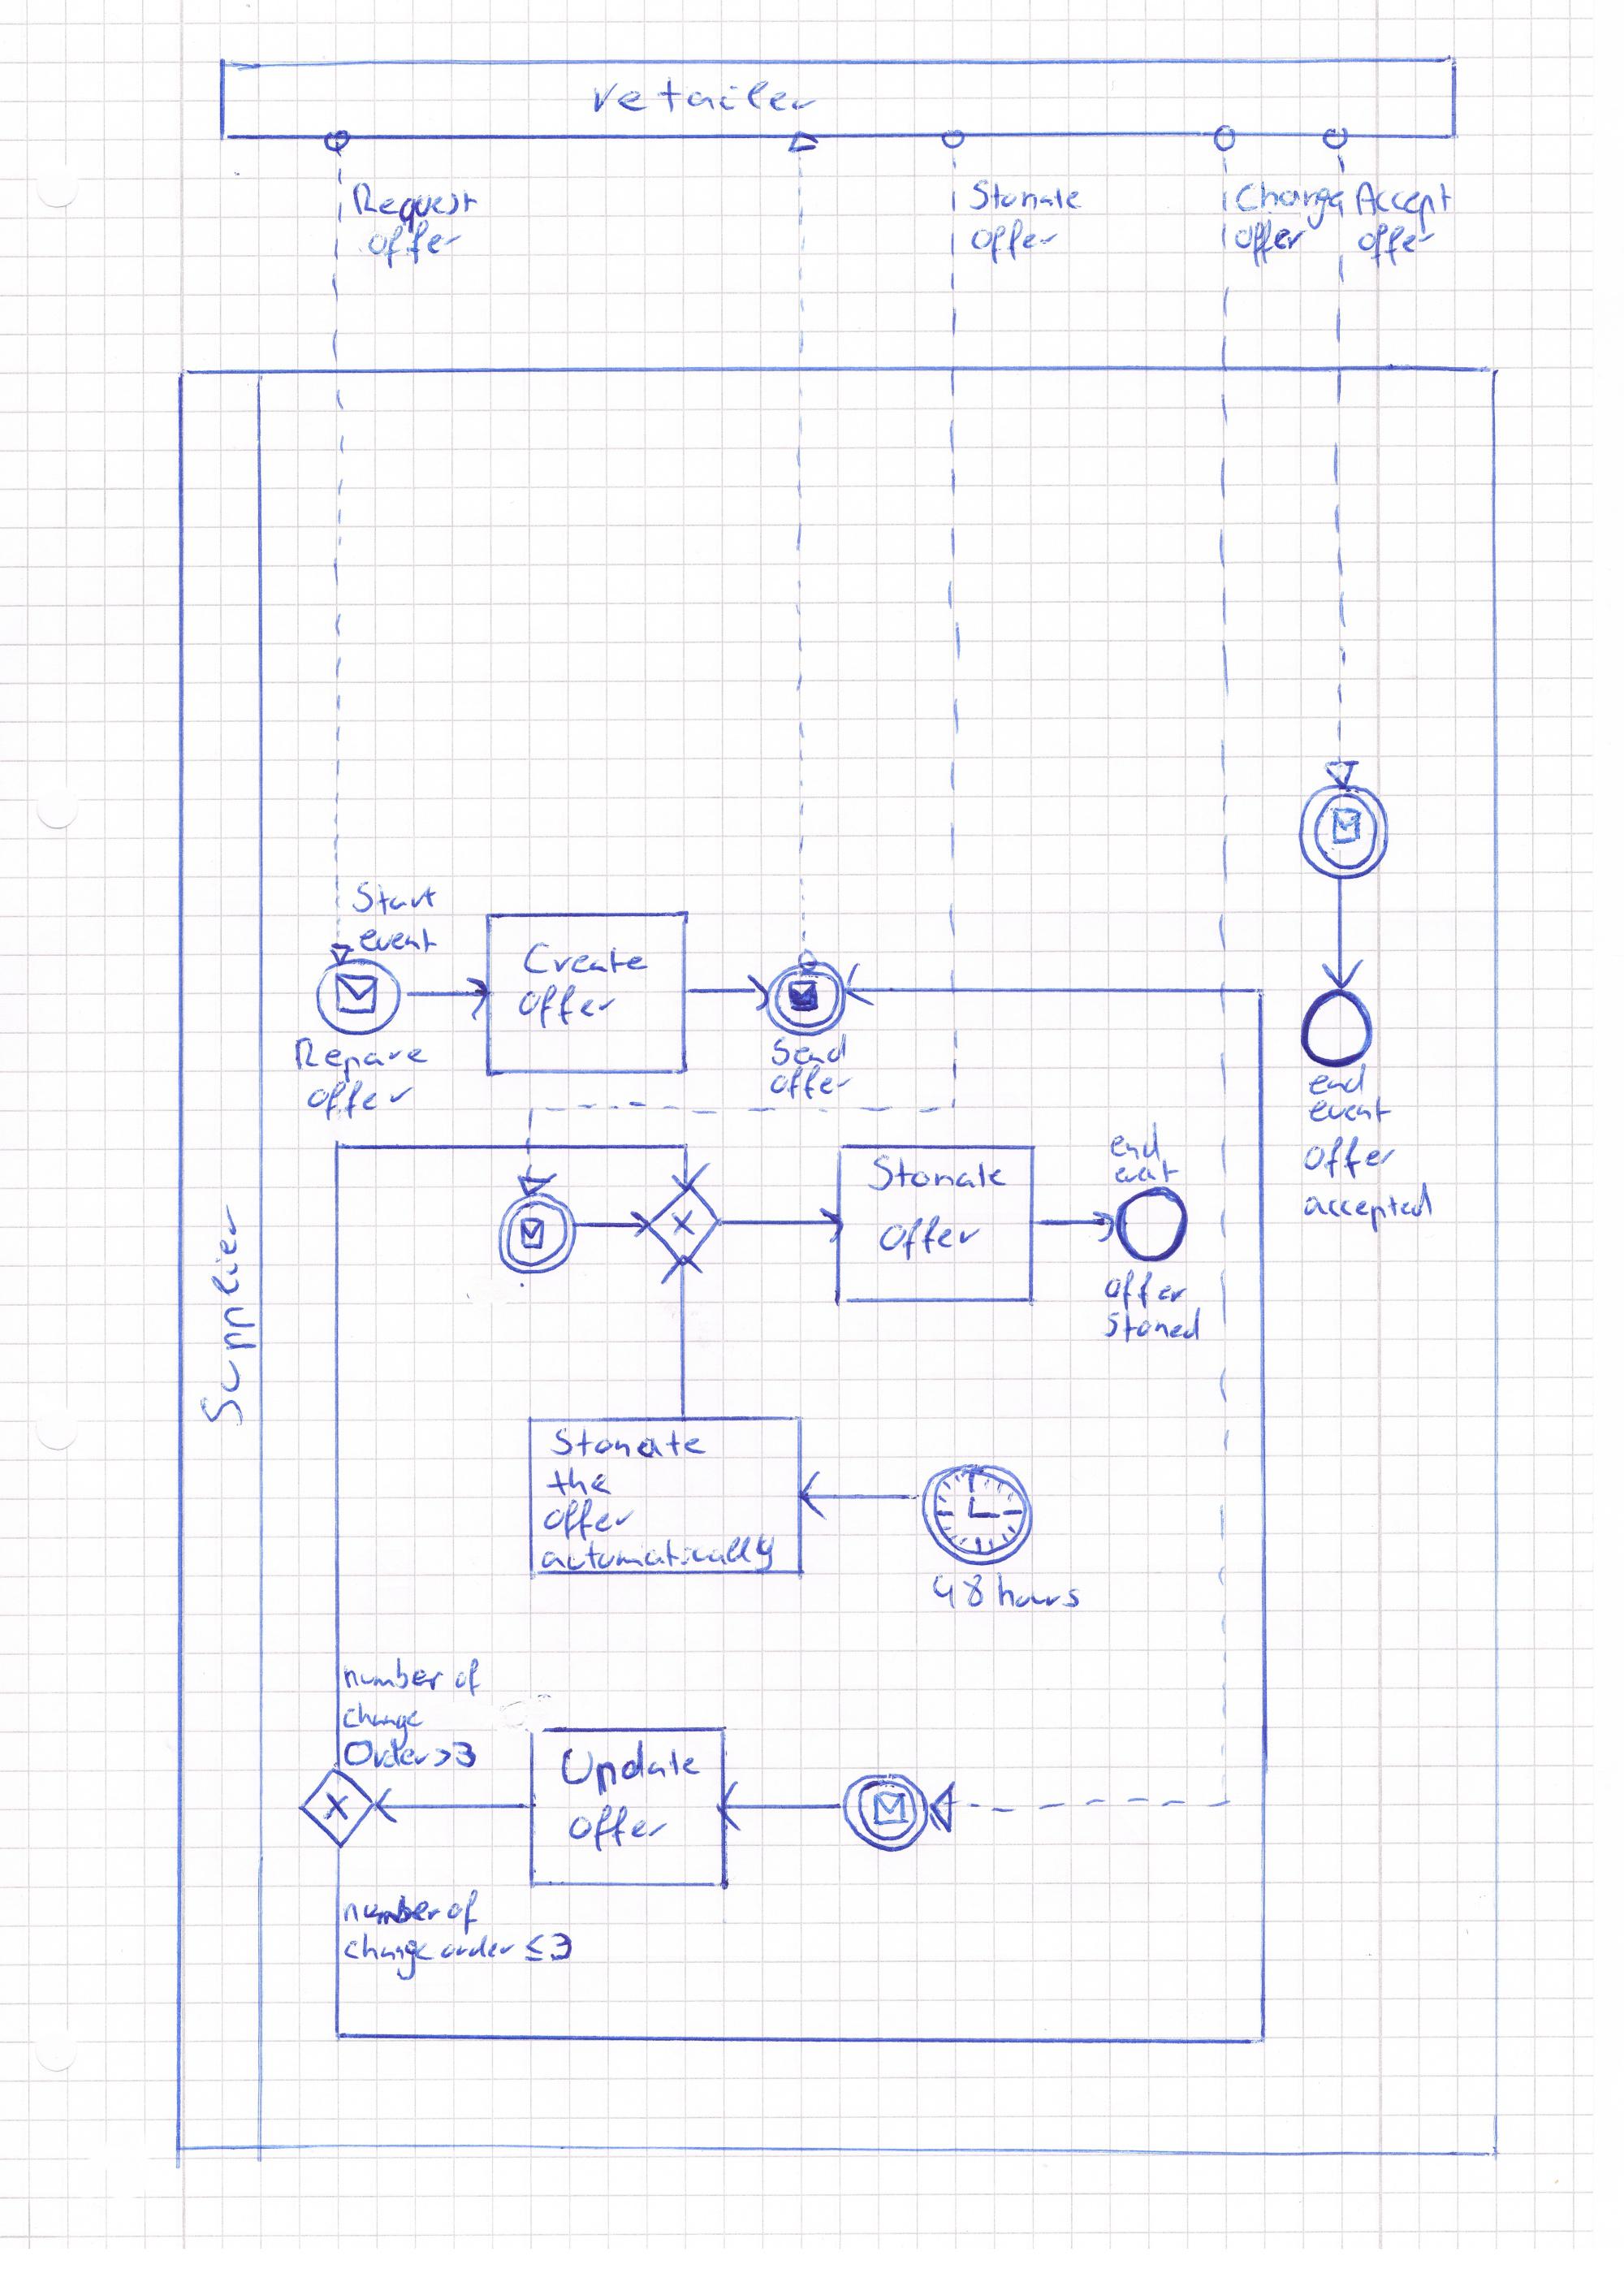 retailer
Request
offer
Stonate
offer
Change
offer
Accept
offer
Start
event
Create
offer
Repare
offer
Send
offer
end
event
offer
accepted
Stonate
offer
end
offer
Stoned
Supplier
Stonate
the
offer
automatically
48 hours
number of
change
Order >3
Update
offer
number of
change order ≤3